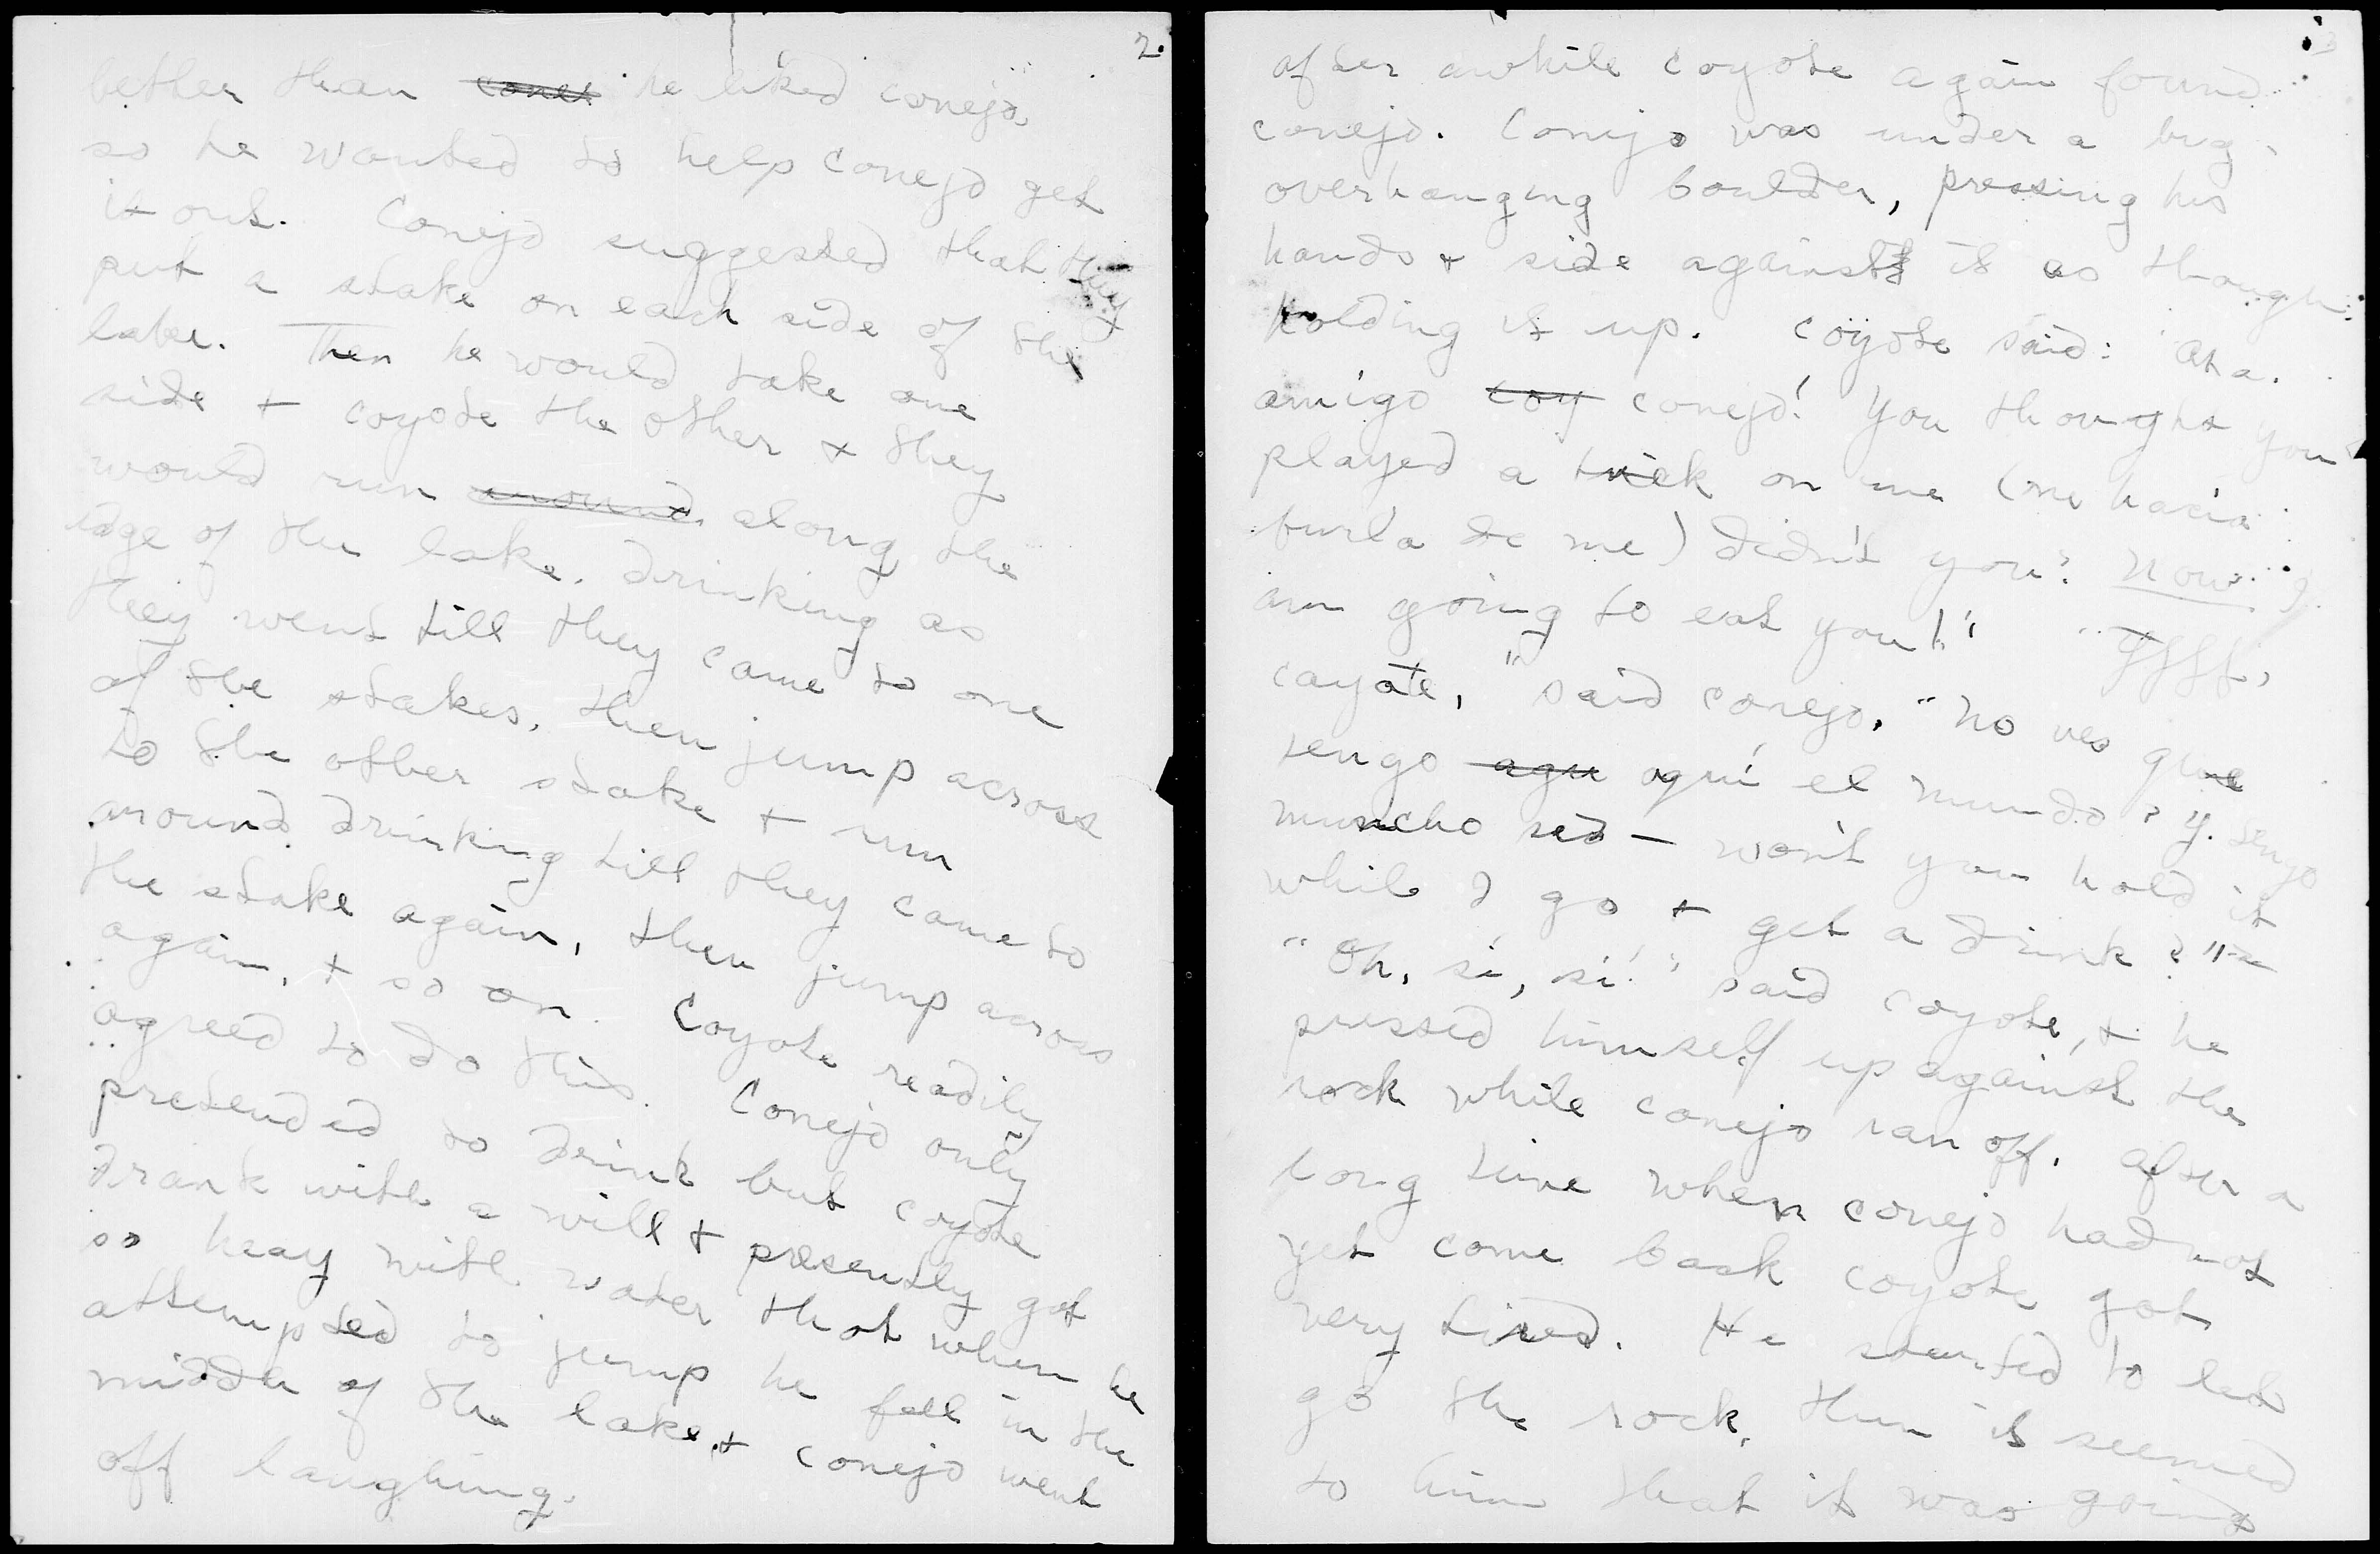 2.
better than conej he liked conejo,
so he wanted to help conejo get
it out. Conejo suggested that they
put a stake on each side of the
lake. Then he would take one
side + coyote the other + they
would run around along the
edge of the lake, drinking as
they went till they came to one
of the stakes, then jump across
to the other stake + run
around drinking till they came to
the stake again, then jump across
again, + so on. Coyote readily
agreed to do this. Conejo only
pretended to drink but coyote
drank with a will + presently got
so heay with water that when he
attempted to jump he fell in the
middle of the lake, + conejo went
off laughing.
3
after awhile coyote again found
conejo. Conejo was under a big
overhanging boulder, pressing his
hands + side against it as though
holding it up. Coyote said: Aha.
amigo coy conejo! You thought you
played a trick on me (me hacia
burla de me) didn't you? Now I
am going to eat you!"
coyote," said conejo, "No ves que
tengo aqu aquí el mundo? y tengo
muncho sed — won't you hold it
while I go + get a drink?"
"Oh, sí, sí!" said coyote, + he
pressed himself up against the
rock while conejo ran off. After a
long time when conejo had not
yet come back coyote got
very tired. He started to let
go the rock, then it seemed
to him that it was going